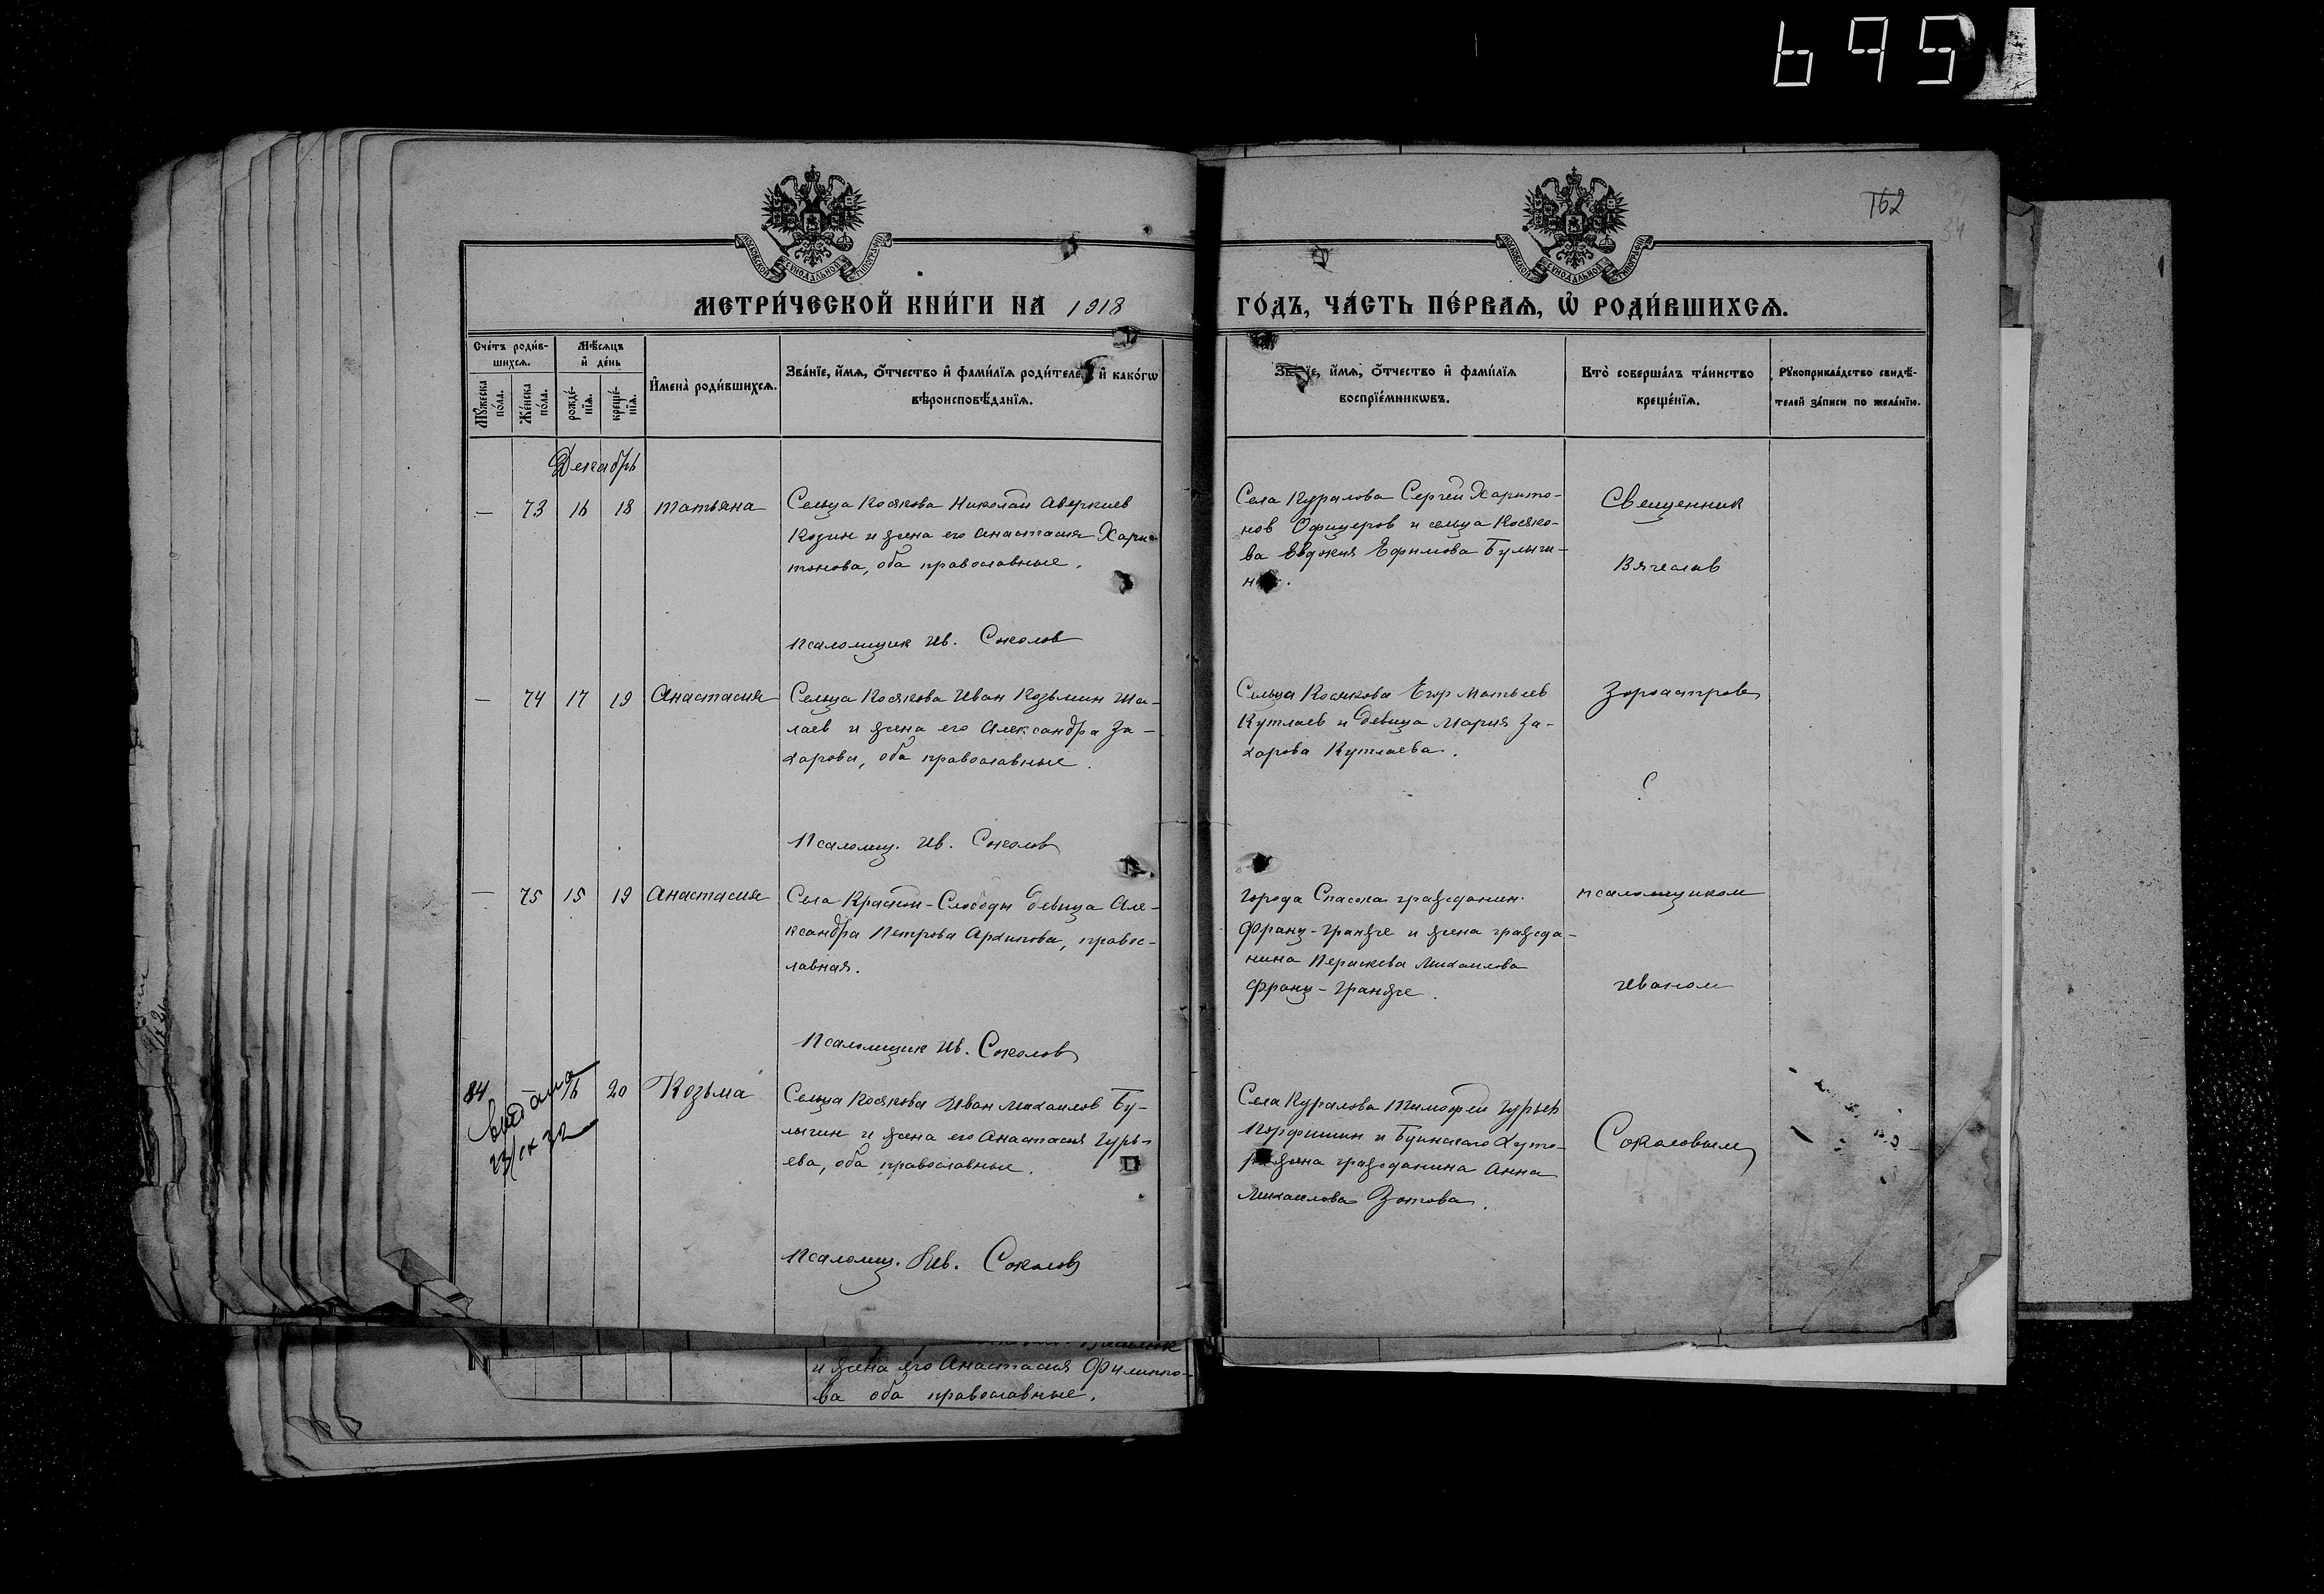 695
162
34
МОСКОВСКОЙ СѴНОДАЛЬНОЙ ТИПОГРАФІИ
МОСКОВСКОЙ СѴНОДАЛЬНОЙ ТИПОГРАФІИ
МЕТРИ́ЧЕСКОЙ КНИ́ГИ НА 1918
ГО́ДЪ, ЧА́СТЬ ПЕ́РВАѦ, Ѡ РОДИ́ВШИХСѦ.
Сче́тъ роди́в-
шихсѧ.
Мѣ́сѧцъ
и҆ де́нь
Мꙋ́жеска
по́ла.
Же́нска
по́ла.
рожде́-
нїѧ.
креще́-
нїѧ.
И҆мена̀ роди́вшихсѧ.
Зва́нїе, и҆́мѧ, ѻ҆́тчество и҆ фами́лїѧ роди́теле, и҆ како́гѡ
вѣроисповѣ́данїѧ.
и҆́мѧ, ѻ҆́тчество и҆ фами́лїѧ
воспрїе́мникѡвъ.
Кто̀ соверша́лъ та́инство
креще́нїѧ.
Рꙋкоприкла́дство свидѣ́-
телей за́писи по жела́нїю.
Декабрь
— 73 16 18 Татьяна
Сельца Косякова Николай Аверкиев
Козин и жена его Анастасия Хари-
тонова, оба православные.
Псаломщик Ив. Соколов
Села Куралова Сергей Харито-
нов Офицеров и сельца Косяко-
ва Евдокия Ефимова Булыги-
Священник
Вячеслав
— 74 17 19 Анастасия
Сельца Косякова Иван Козьмин Ша-
лаев и жена его Александра За-
харова, оба православные.
Псаломщ. Ив. Соколов
Сельца Косякова Егор Матвеев
Кутлаев и девица Мария За-
харова Кутлаева.
Зороастров
?
— 75 15 19 Анастасия
Села Красной-Слободы девица Але-
ксандра Петрова Архипова, правос-
лавная.
Псаломщик Ив. Соколов
Города Спасска гражданин
Франц-Гранже и жена гражда-
нина Пераскева Михаилова
Франц-Гранже.
псаломщиком
Иваном
84 16 20 Козьма
выдана
23/IX 32
Сельца Косякова Иван Михаилов Бу-
лыгин и жена его Анастасия Гурь-
ева, оба православные.
Псаломщ. Ив. Соколов
Села Куралова Тимофей Гурьев
Порфишин и Буинского Хуто-
жена гражданина Анна
Михаилова Зотова.
Соколовым
и жена его Анастасия Филиппо-
ва оба православные.